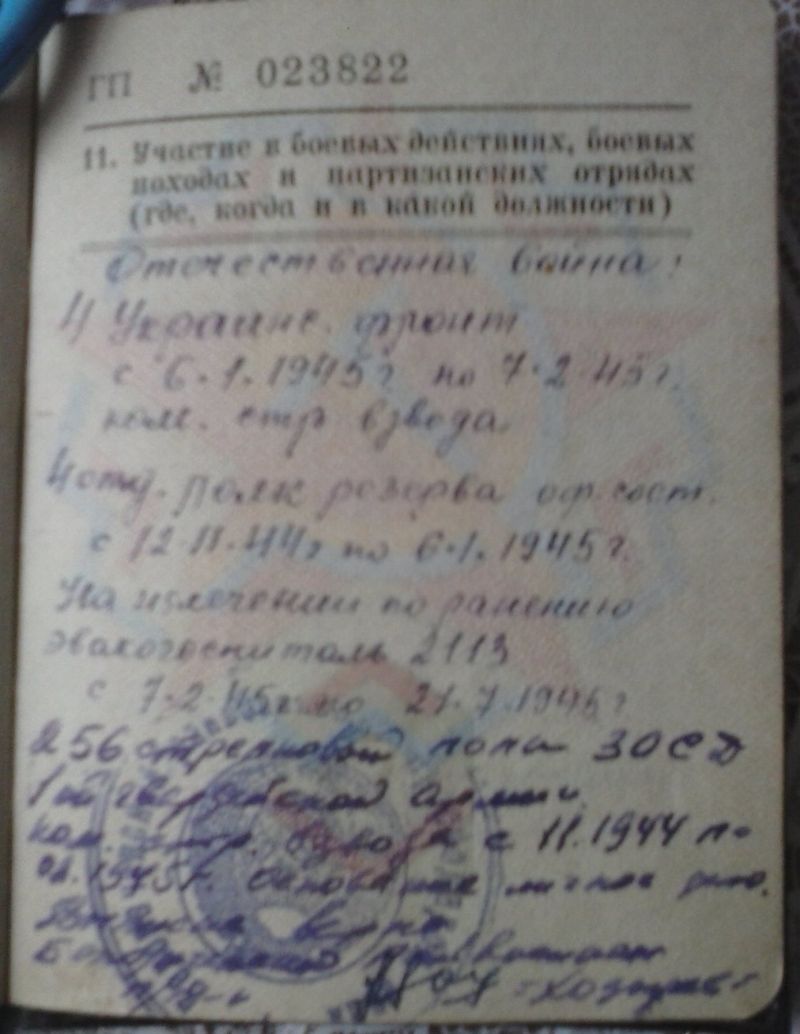 ГП № 023822
11. Участие в боевых действиях, боевых
походах и партизанских отрядах
(где, когда и в какой должности)
Отечественная война:
4) Украинс. фронт
с 6.1.1945г по 7.2.45г.
ком. стр взвода.
4 отд. полк резерва оф. сост.
с 12.11.44г по 6.1.1945г.
На излечении по ранению
эвакогоспиталь 2113
с 7.2.45г. по 21.7.1945г
256 стрелковый полк 30 СД
1й гвардейской армии
ком. стр. взвода с 11.1944 по
1945г. Основание личное дело.
верно